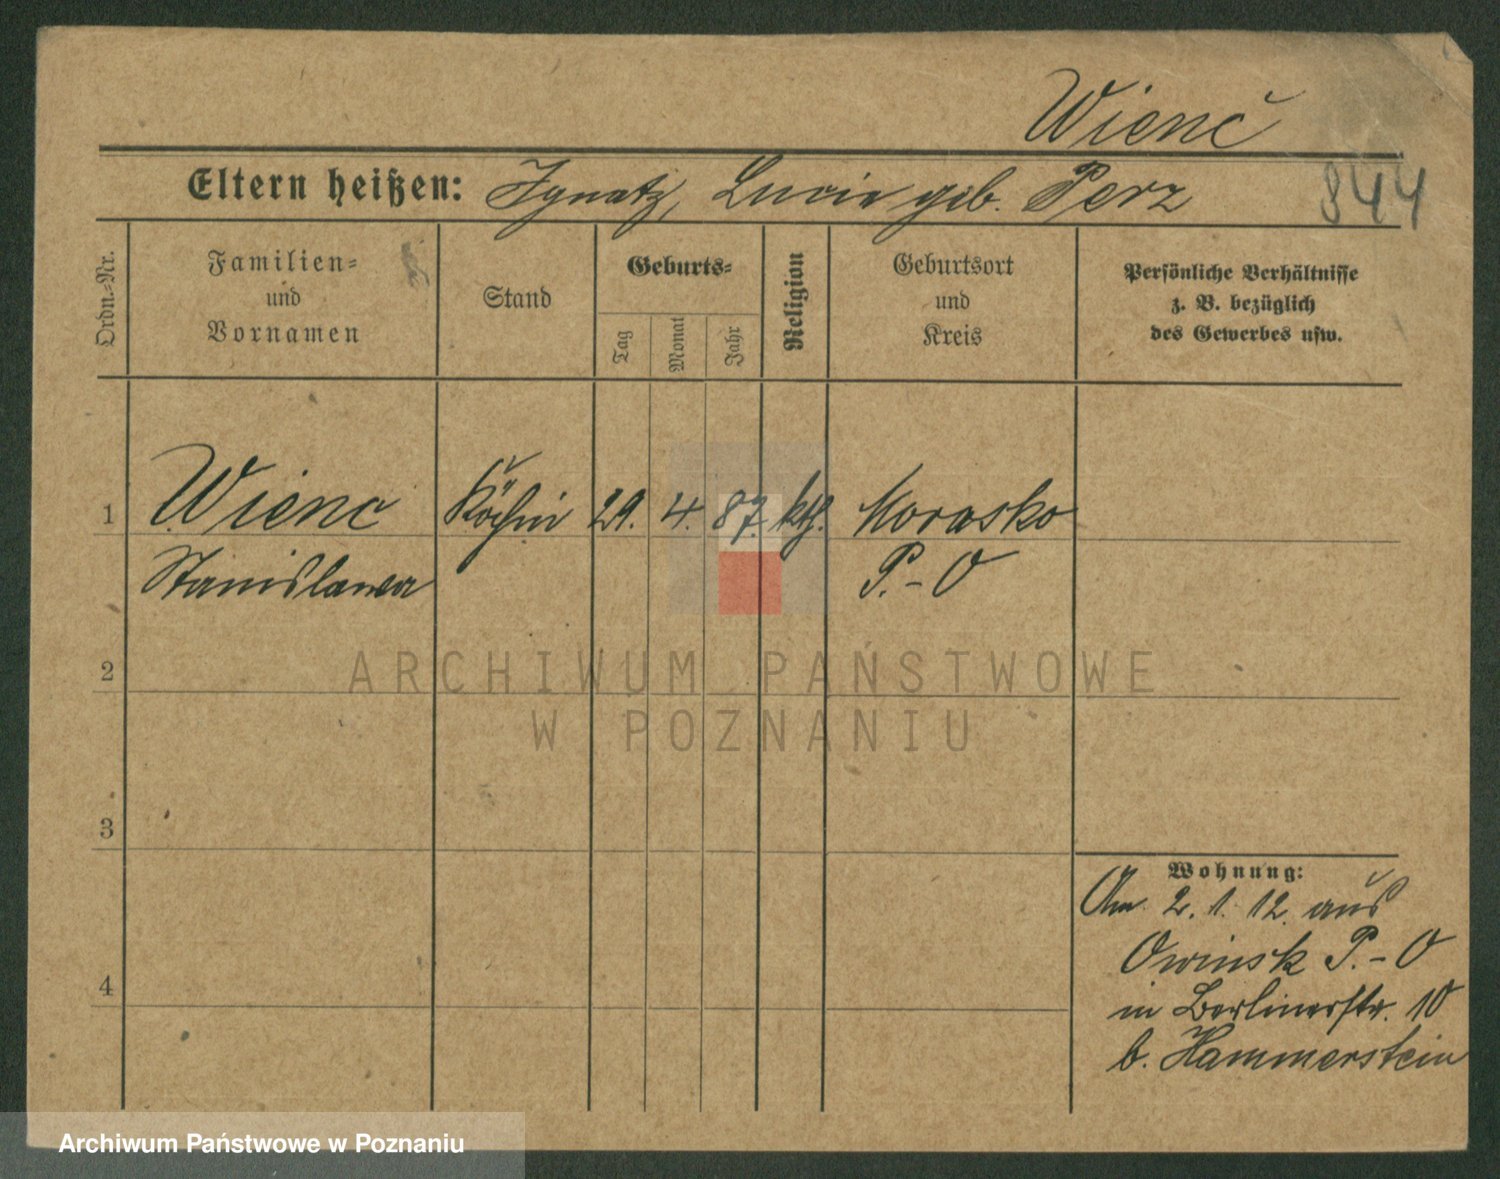 Wienč
Eltern heißen: Ignatz, Lucie geb. Perz
844
Ordn.-Nr.
Familien-
und
Vornamen
Stand
Geburts-
Tag
Monat
Jahr
Religion
Geburtsort
und
Kreis
Persönliche Verhältnisse
z. B. bezüglich
des Gewerbes usw.
1 Wienc Köchin 29. 4. 87. kth. Morasko
Stanislawa P.-O
2
3
4
Wohnung:
Am 2. 1. 12. aus
Owinsk P.-O
in Berlinerstr. 10
b. Hammerstein
ARCHIWUM PAŃSTWOWE
W POZNANIU
Archiwum Państwowe w Poznaniu